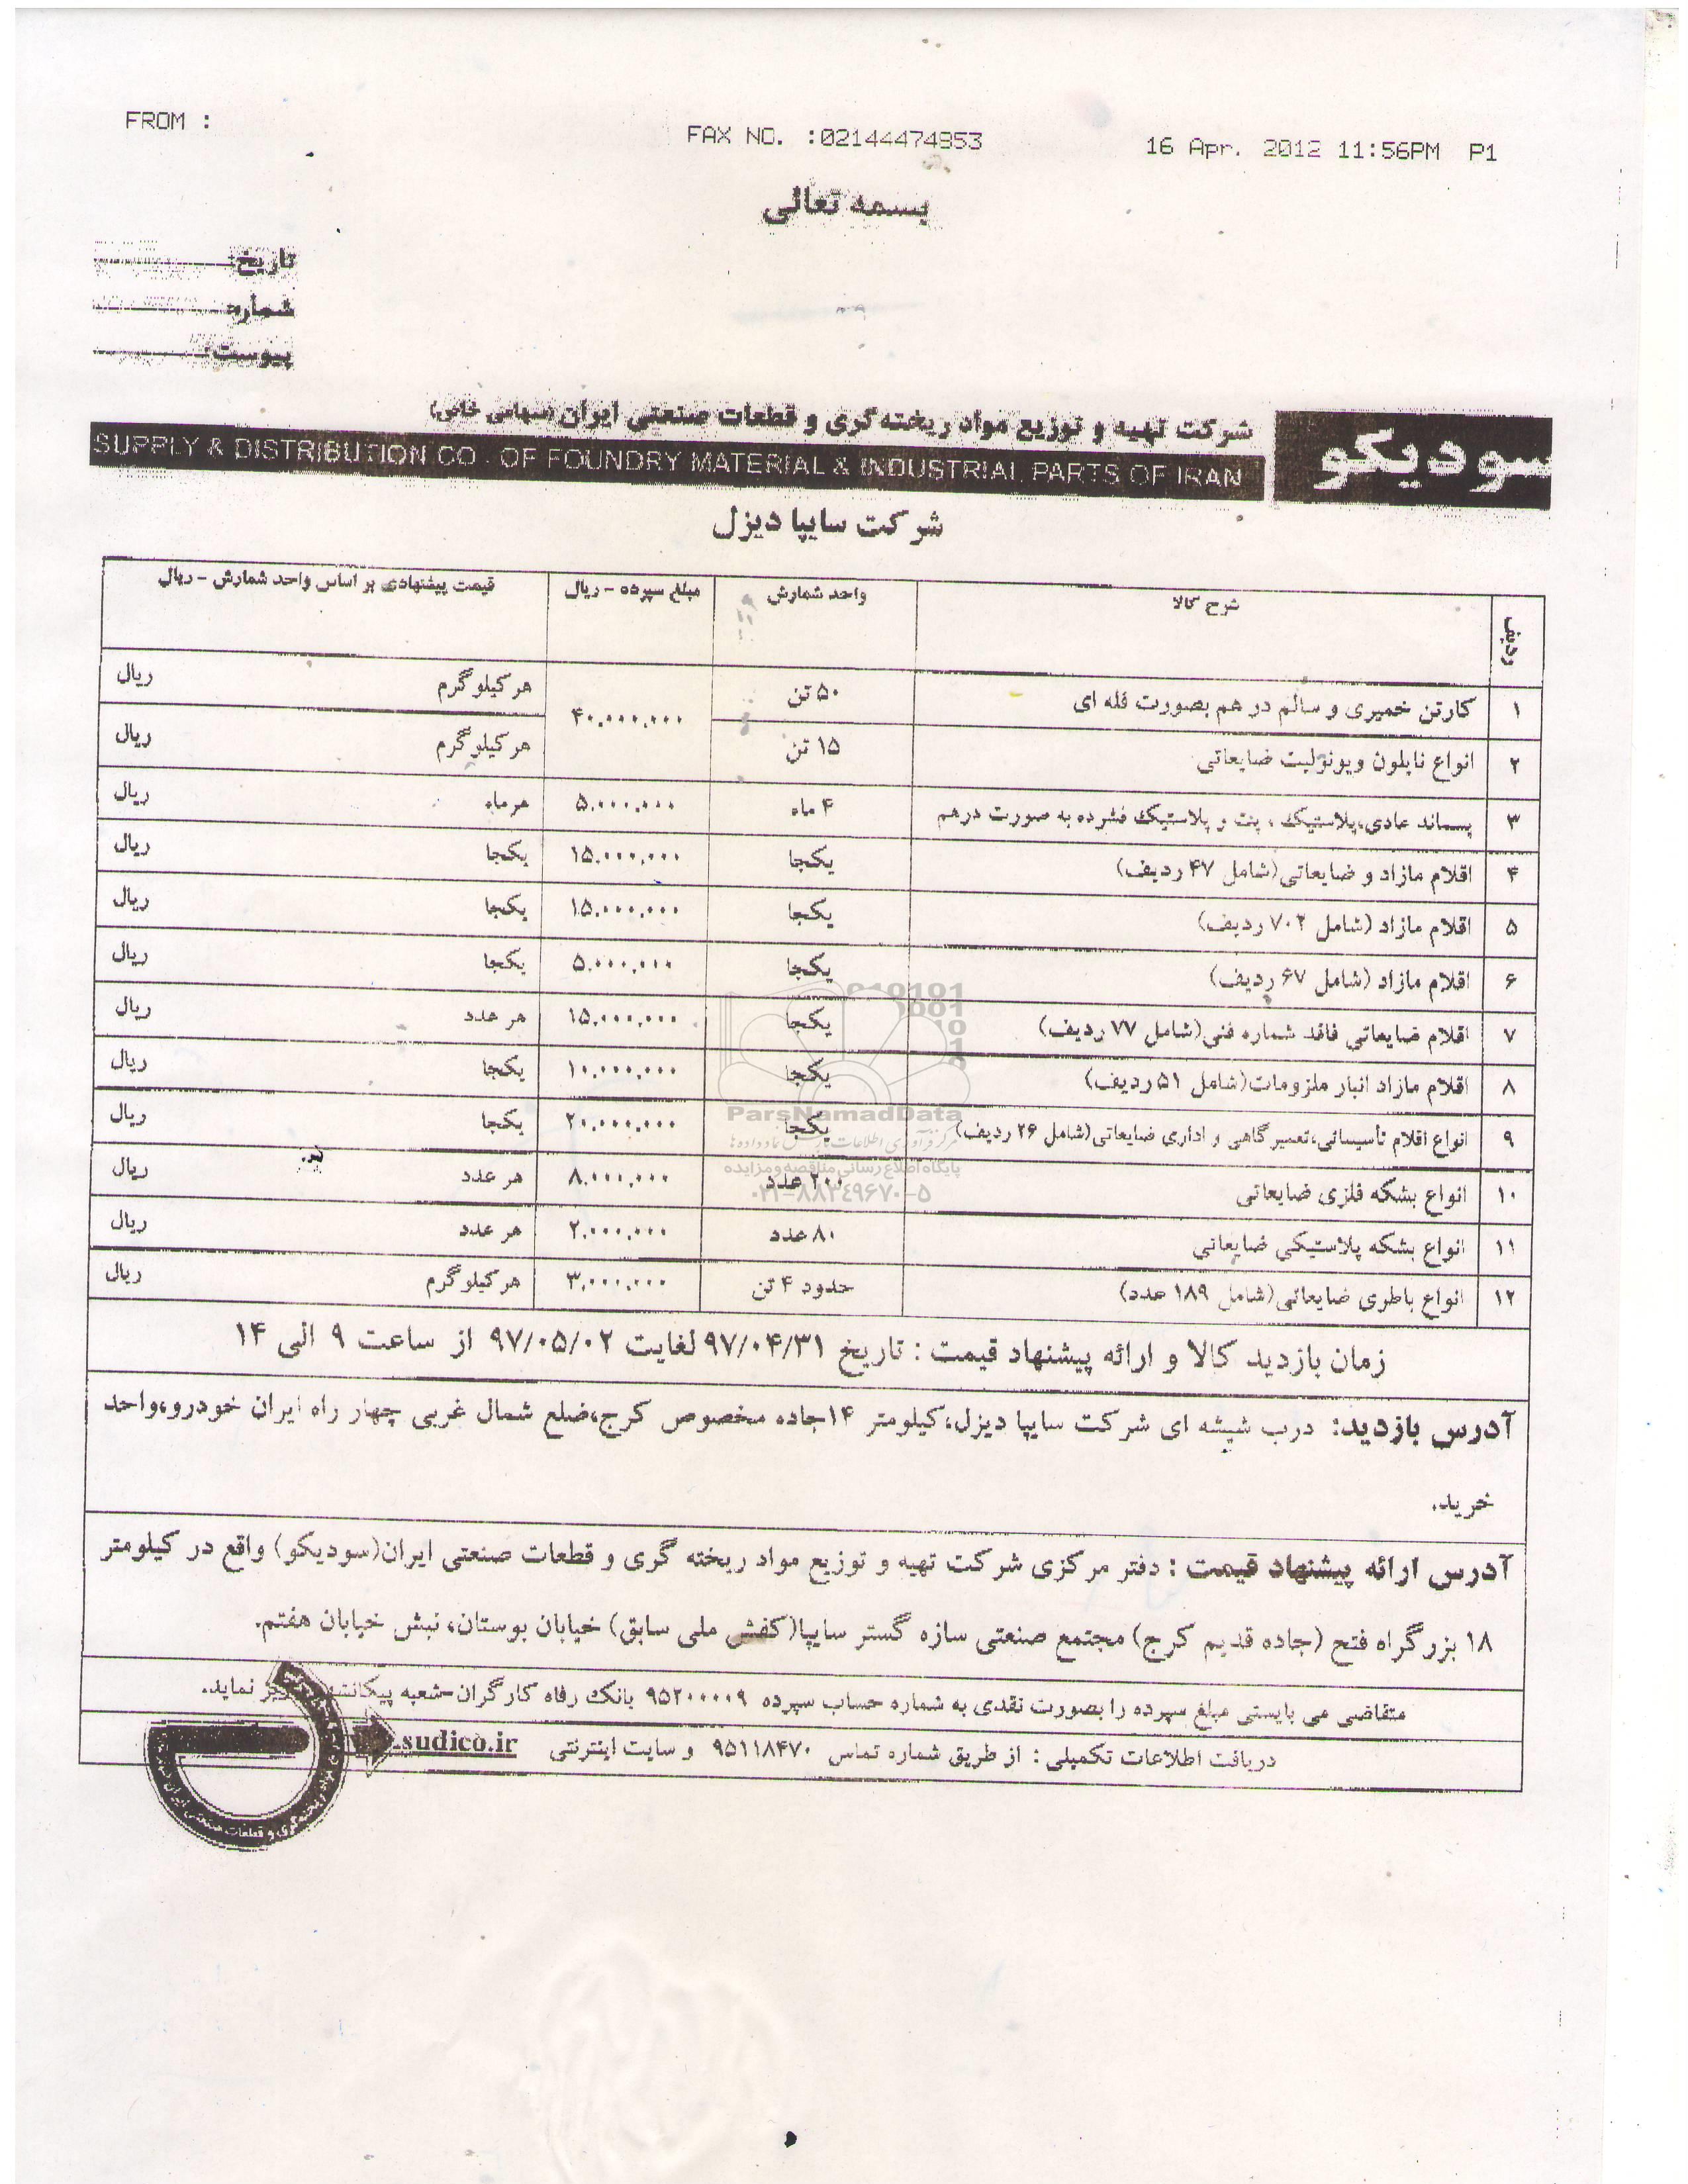 FROM :
FAX NO. :02144474953
16 Apr. 2012 11:56PM P1
بسمه تعالی
تاریخ:
شماره:
پیوست:
سودیکو
شرکت تهیه و توزیع مواد ریخته گری و قطعات صنعتی ایران (سهامی خاص)
SUPPLY & DISTRIBUTION CO . OF FOUNDRY MATERIAL & INDUSTRIAL PARTS OF IRAN
شرکت سایپا دیزل
ردیف شرح کالا واحد شمارش مبلغ سپرده - ریال قیمت پیشنهادی بر اساس واحد شمارش - ریال
۱ کارتن خمیری و سالم در هم بصورت فله ای ۵۰ تن ۴۰.۰۰۰.۰۰۰ هر کیلوگرم ریال
۲ انواع نایلون ویونولیت ضایعاتی ۱۵ تن هر کیلوگرم ریال
۳ پسماند عادی،پلاستیک ، پت و پلاستیک فشرده به صورت درهم ۴ ماه ۵.۰۰۰.۰۰۰ هرماه ریال
۴ اقلام مازاد و ضایعاتی(شامل ۴۷ ردیف) یکجا ۱۵.۰۰۰.۰۰۰ یکجا ریال
۵ اقلام مازاد (شامل ۷۰۲ ردیف) یکجا ۱۵.۰۰۰.۰۰۰ یکجا ریال
۶ اقلام مازاد (شامل ۶۷ ردیف) یکجا ۵.۰۰۰.۰۰۰ یکجا ریال
۷ اقلام ضایعاتی فاقد شماره فنی(شامل ۷۷ ردیف) یکجا ۱۵.۰۰۰.۰۰۰ هر عدد ریال
۸ اقلام مازاد انبار ملزومات(شامل ۵۱ ردیف) یکجا ۱۰.۰۰۰.۰۰۰ یکجا ریال
۹ انواع اقلام تأسیساتی،تعمیرگاهی و اداری ضایعاتی(شامل ۲۶ ردیف) یکجا ۲۰.۰۰۰.۰۰۰ یکجا ریال
۱۰ انواع بشکه فلزی ضایعاتی ۲۰۰ عدد ۸.۰۰۰.۰۰۰ هر عدد ریال
۱۱ انواع بشکه پلاستیکی ضایعاتی ۸۰ عدد ۲.۰۰۰.۰۰۰ هر عدد ریال
۱۲ انواع باطری ضایعاتی(شامل ۱۸۹ عدد) حدود ۴ تن ۳.۰۰۰.۰۰۰ هر کیلوگرم ریال
ParsNamadData
پایگاه اطلاع رسانی مناقصه و مزایده
۰۲۱-۸۸۳۴۹۶۷۰-۵
زمان بازدید کالا و ارائه پیشنهاد قیمت : تاریخ ۹۷/۰۴/۳۱ لغایت ۹۷/۰۵/۰۲ از ساعت ۹ الی ۱۴
آدرس بازدید: درب شیشه ای شرکت سایپا دیزل،کیلومتر ۱۴جاده مخصوص کرج،ضلع شمال غربی چهار راه ایران خودرو،واحد
خرید.
آدرس ارائه پیشنهاد قیمت : دفتر مرکزی شرکت تهیه و توزیع مواد ریخته گری و قطعات صنعتی ایران(سودیکو) واقع در کیلومتر
۱۸ بزرگراه فتح (جاده قدیم کرج) مجتمع صنعتی سازه گستر سایپا(کفش ملی سابق) خیابان بوستان، نبش خیابان هفتم.
متقاضی می بایستی مبلغ سپرده را بصورت نقدی به شماره حساب سپرده ۹۵۲۰۰۰۰۹ بانک رفاه کارگران-شعبه نماید.
دریافت اطلاعات تکمیلی : از طریق شماره تماس ۹۵۱۱۸۴۷۰ و سایت اینترنتی .sudico.ir